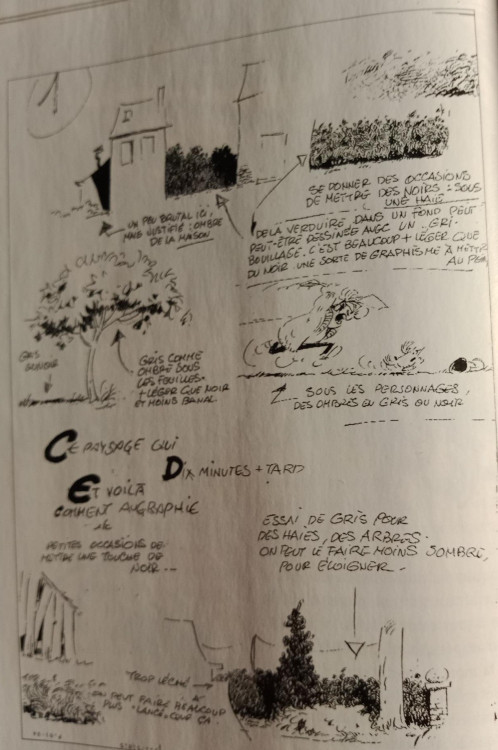 1
UN PEU BRUTAL ICI,
MAIS JUSTIFIÉ : OMBRE
DE LA MAISON
SE DONNER DES OCCASIONS
DE METTRE DES NOIRS : SOUS
UNE HAIE
DE LA VERDURE DANS UN FOND PEUT
PEUT-ÊTRE DESSINÉE AVEC UN GRI-
BOUILLAGE. C'EST BEAUCOUP + LÉGER QUE
DU NOIR UNE SORTE DE GRAPHISME À METTRE
AU
GRIS
GRIS COMME
OMBRE SOUS
LES FEUILLES.
+ LÉGER QUE NOIR
ET MOINS BANAL
SOUS LES PERSONNAGES,
DES OMBRES EN GRIS OU NOIR
CE PAYSAGE QUI
DIX MINUTES + TARD
ET VOILÀ
COMMENT
PETITES OCCASIONS DE
METTRE UNE TOUCHE DE
NOIR...
ESSAI DE GRIS POUR
DES HAIES, DES ARBRES.
ON PEUT LE FAIRE MOINS SOMBRE,
POUR ÉLOIGNER.
TROP LÉCHÉ
ON PEUT FAIRE BEAUCOUP
PLUS "LANCÉ" QUE ÇA